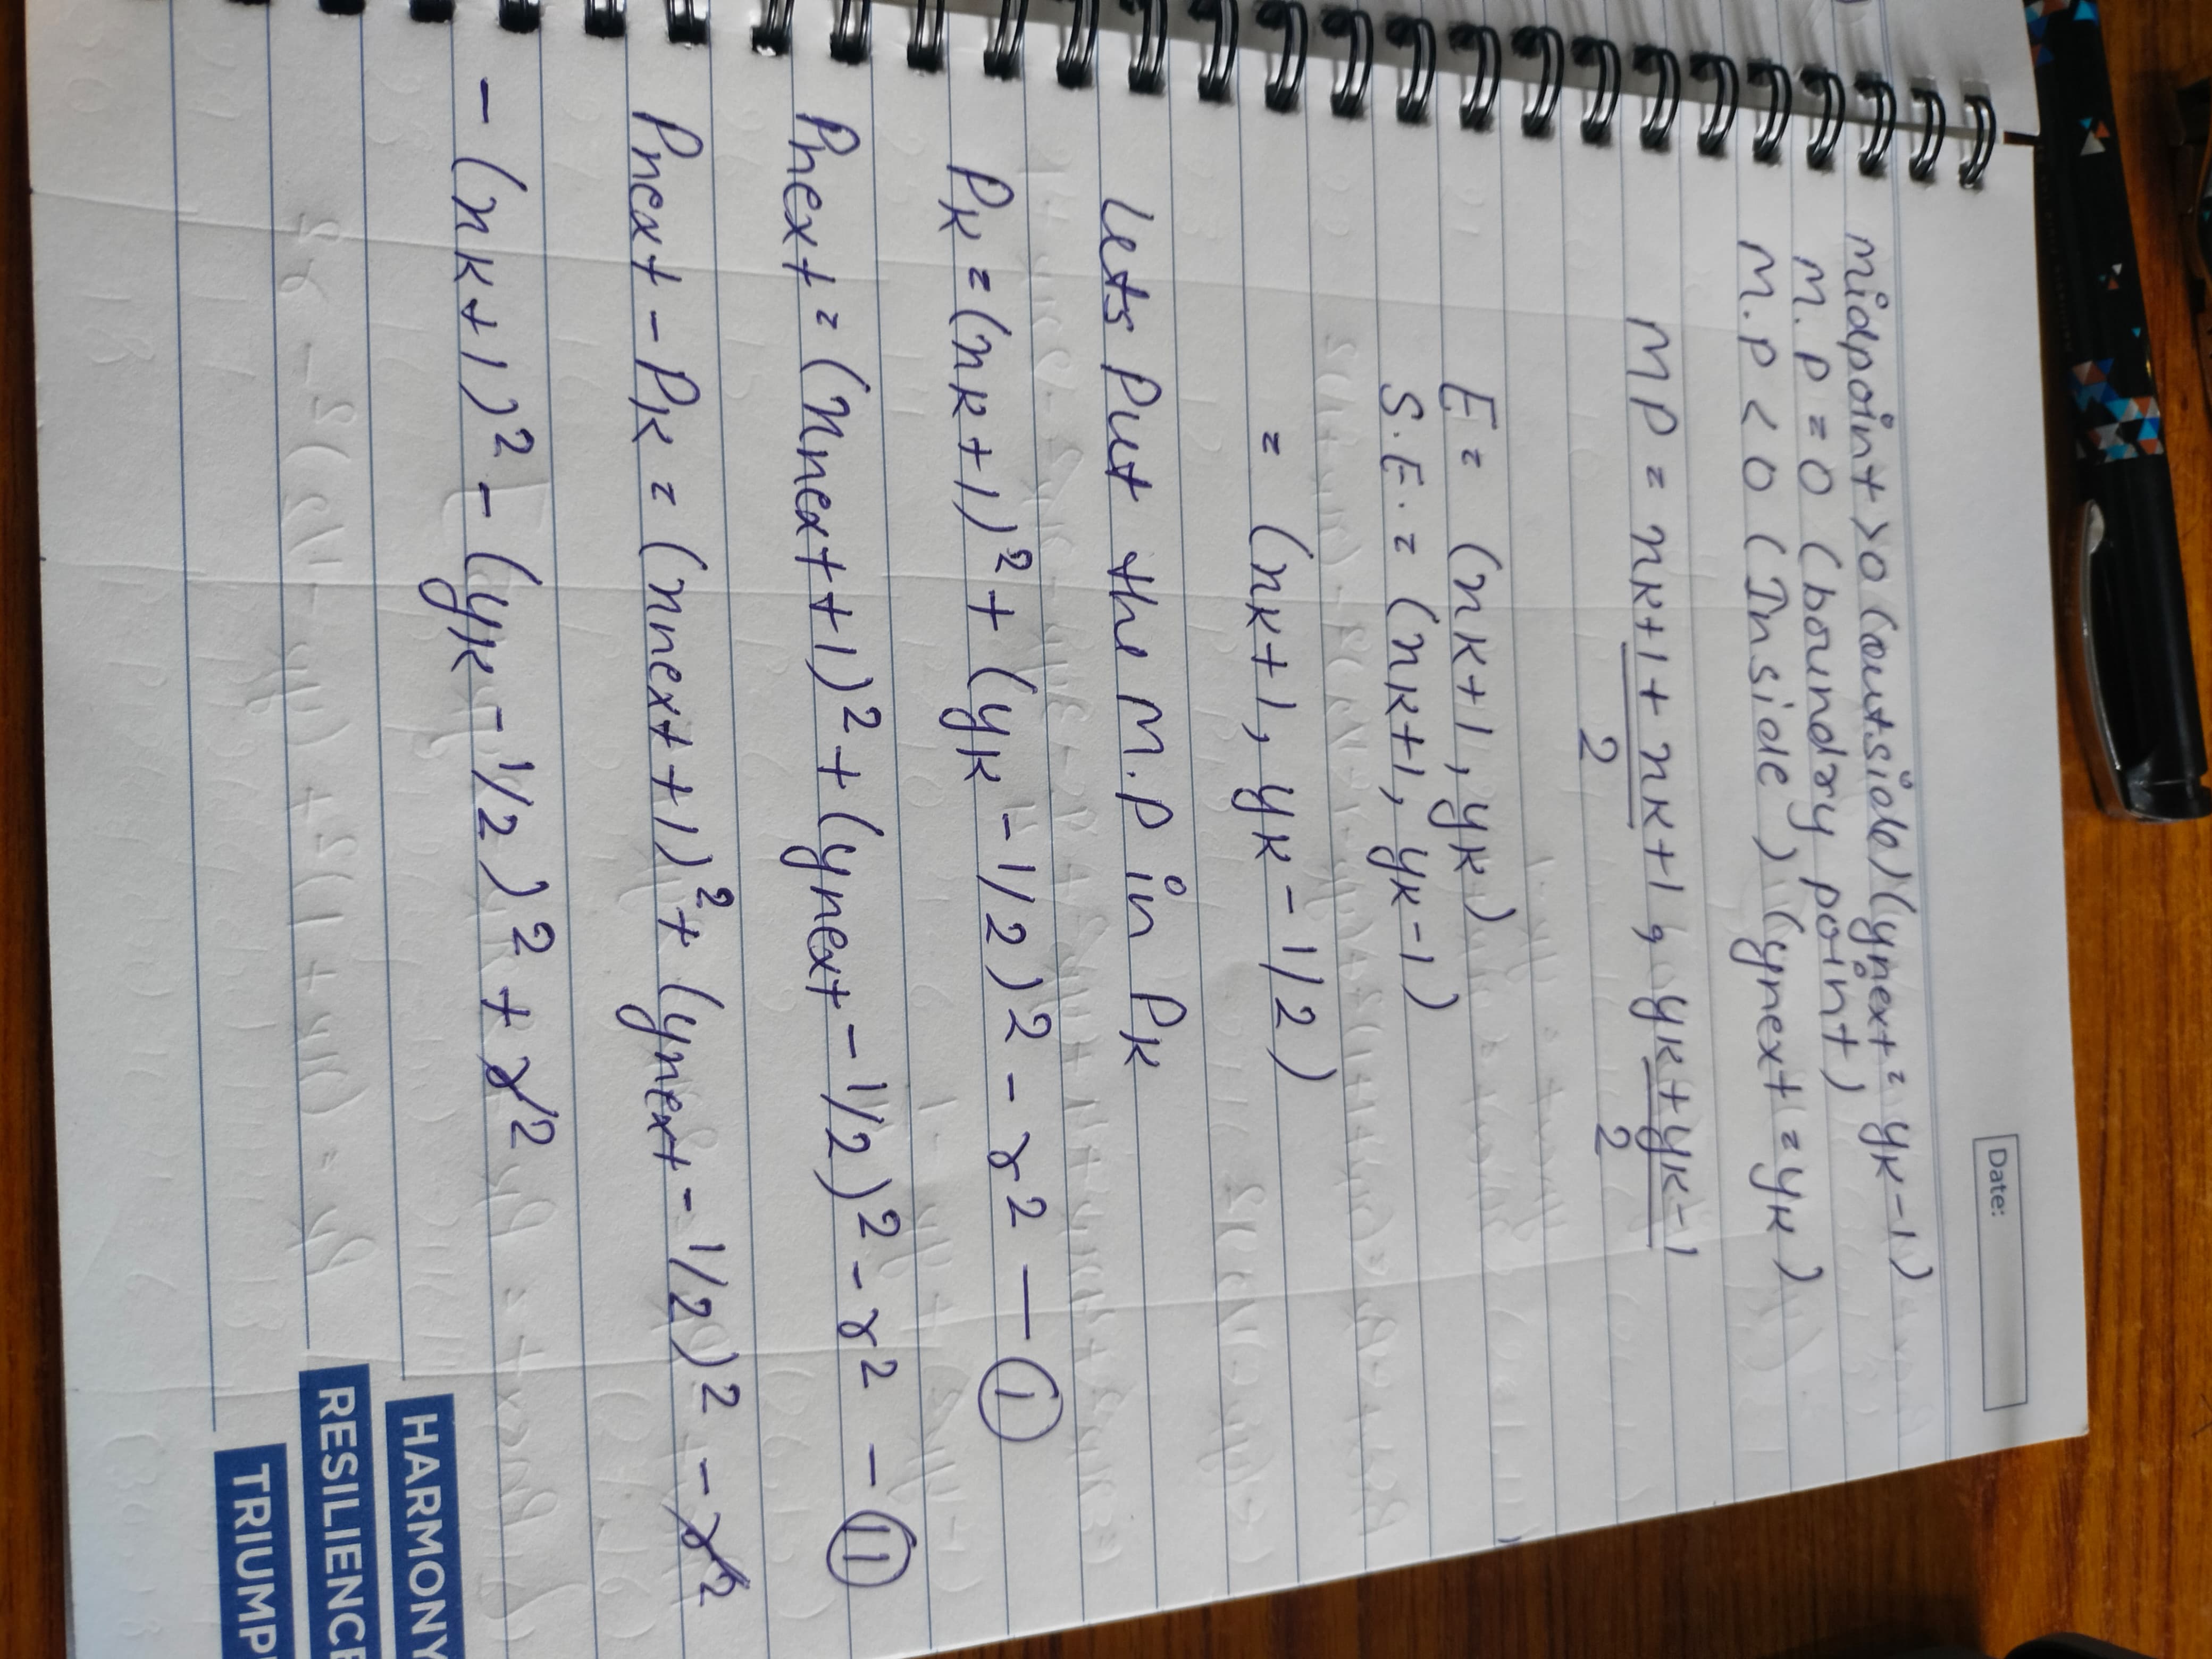 Date:
midpoint > 0 (outside) (ynext = yk - 1)
M.P = 0 (boundry point)
M.P < 0 (Inside) (ynext = yk)
MP = xk+1 + xk+1 / 2 , yk + yk - 1 / 2
E = (xk+1, yk)
S.E. = (xk+1, yk-1)
= (xk+1, yk - 1/2)
Lets Put the M.P in Pk
Pk = (xk+1)² + (yk - 1/2)² - r² — ①
Pnext = (xnext + 1)² + (ynext - 1/2)² - r² — ⑪
Pnext - Pk = (xnext + 1)² + (ynext - 1/2)² - r²
- (xk+1)² - (yk - 1/2)² + r²
HARMONY
RESILIENCE
TRIUMP